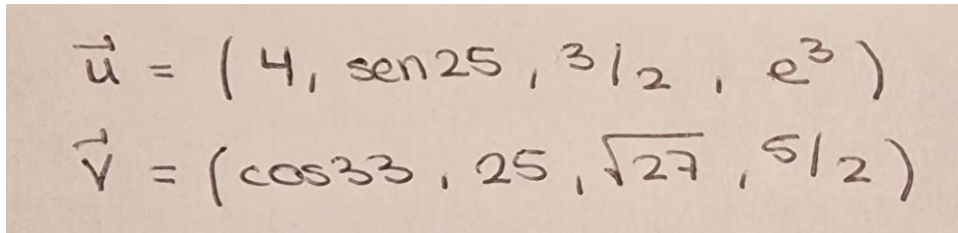 u⃗ = (4, sen25, 3/2, e³)
v⃗ = (cos33, 25, √27, 5/2)